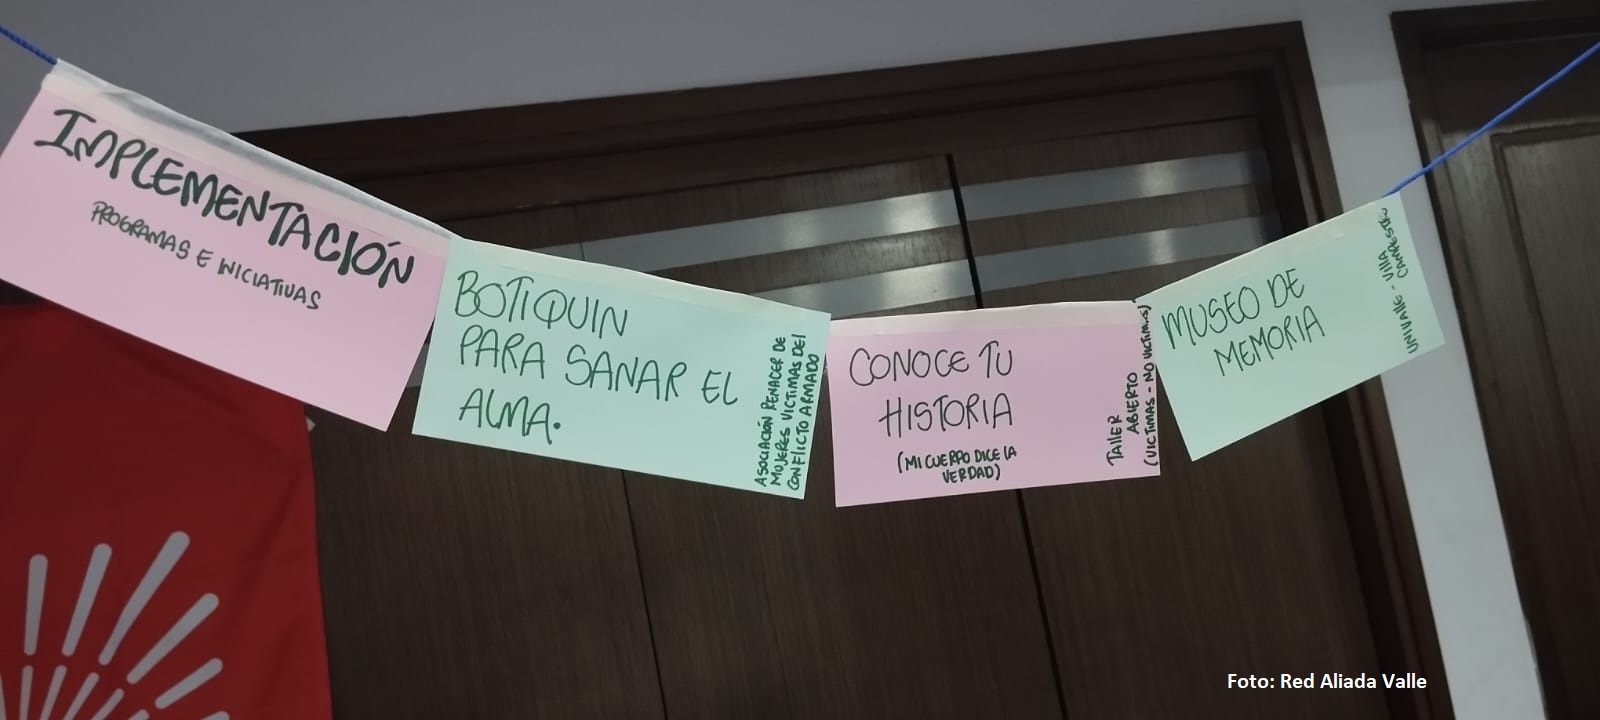 IMPLEMENTACIÓN
PROGRAMAS E INICIATIVAS
BOTIQUIN
PARA SANAR EL
ALMA.
ASOCIACIÓN RENACER DE
MUJERES VICTIMAS DEl
CONFLICTO ARMADO
CONOCE TU
HISTORIA
(MI CUERPO DICE LA
VERDAD)
TAllER
ABIERTO
(VICTIMAS - NO VICTIMAS)
MUSEO DE
MEMORIA
UNIVAllE - VIllA
CAMPESTRE
Foto: Red Aliada Valle